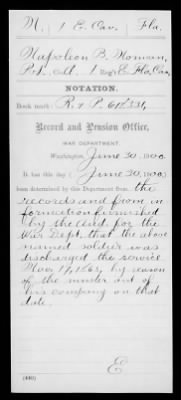 N. | 1 E. Cav. | Fla.
Napoleon B. Norman,
Pvt. Co. , 1 Reg't E. Fla. Cav.
NOTATION.
Book mark: R. & P. 612331,
Record and Pension Office,
WAR DEPARTMENT,
Washington, June 30, 1900.
It has this day (June 30, 1900)
been determined by this Department from the
records and from in
formation furnished
by the Aud. for the
War Dept. that the above
named soldier was
discharged the service
Nov. 17, 1865, by reason
of the muster out of
his company on that
date.
E